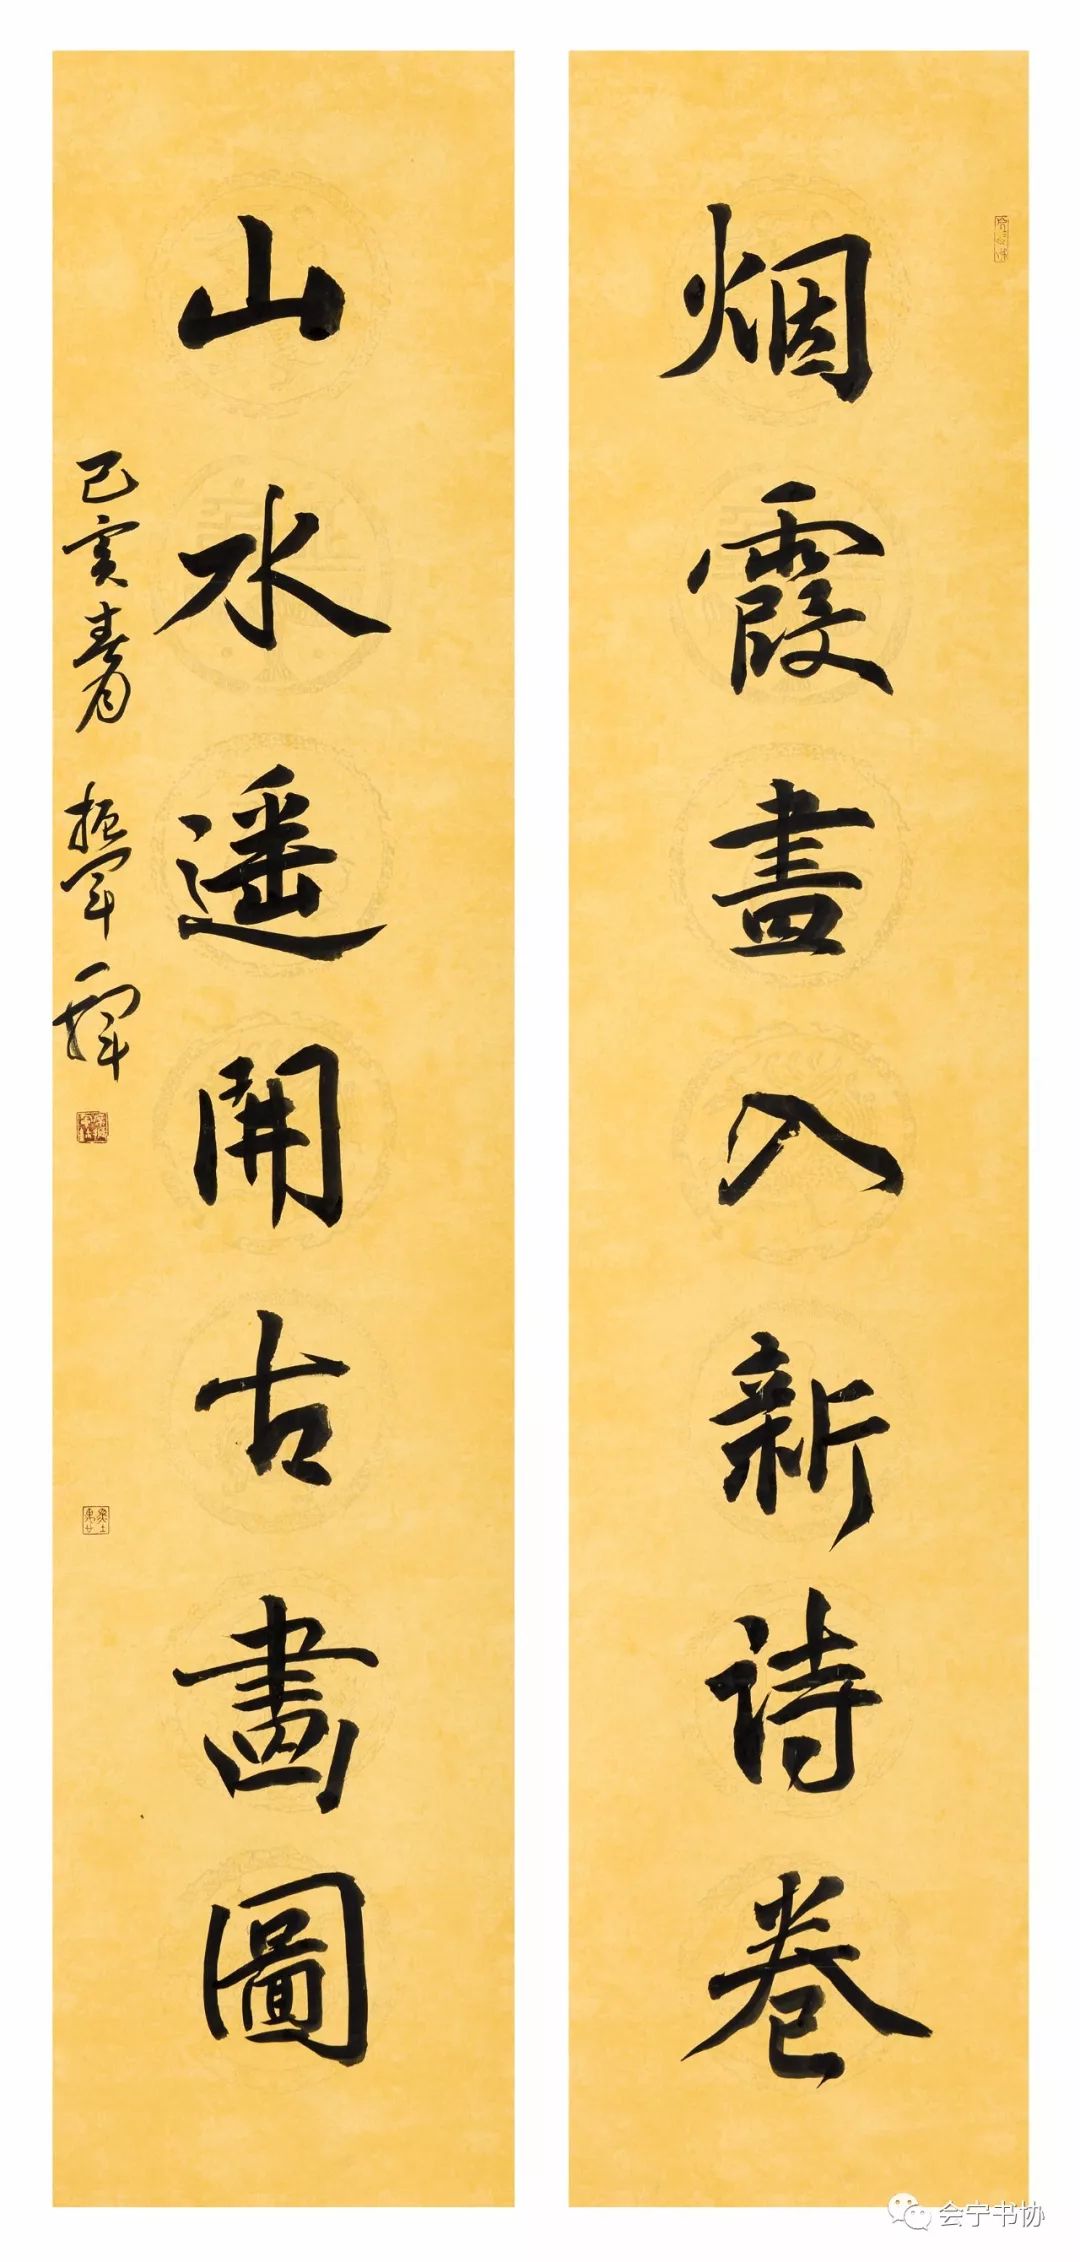 烟霞盡入新诗卷
山水遥開古畫圖
己亥春月 振軍
会宁书协